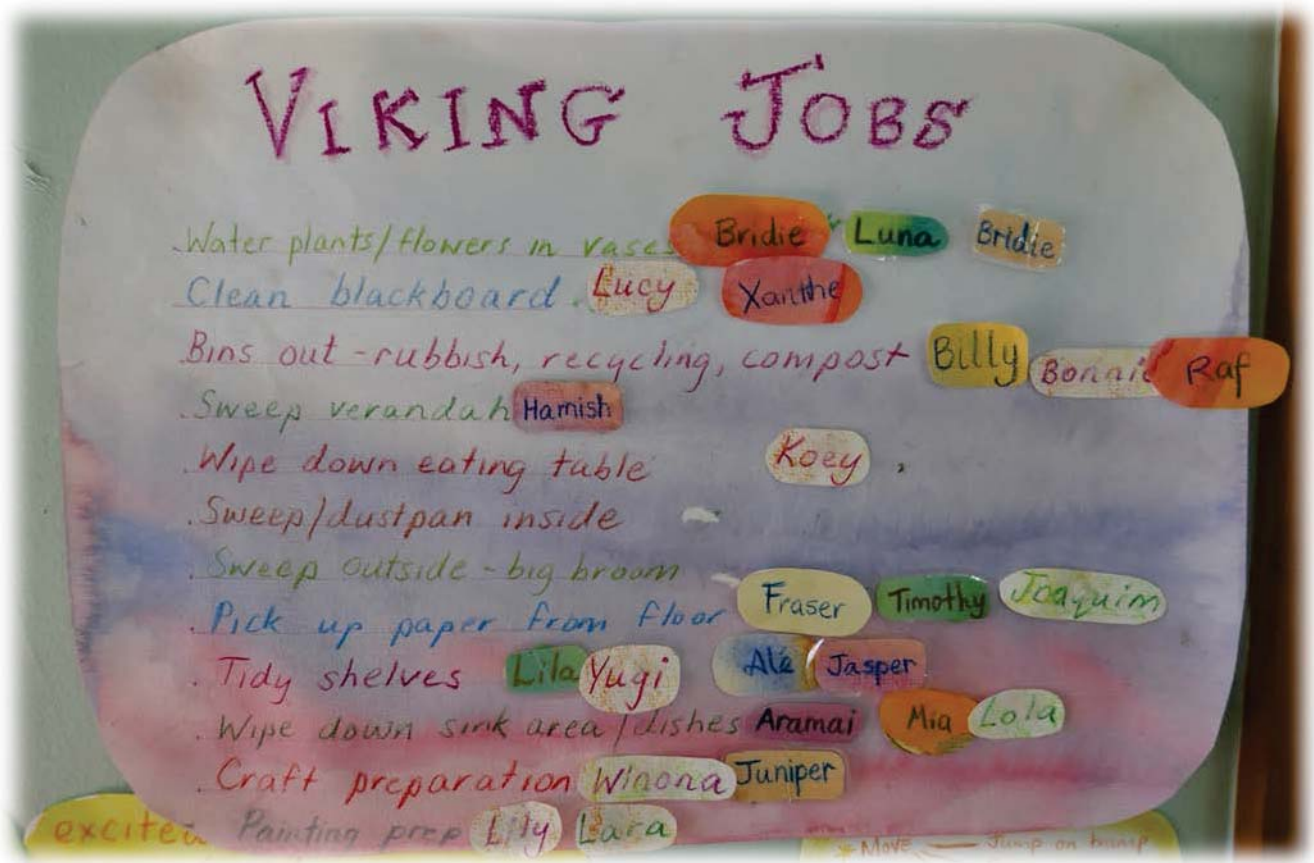 VIKING JOBS
Water plants/flowers in vases Bridie Luna Bridie
Clean blackboard Lucy Xanthe
Bins out - rubbish, recycling, compost Billy Bonnie Raf
Sweep verandah Hamish
Wipe down eating table Koey
Sweep/dustpan inside
Sweep outside - big broom
Pick up paper from floor Fraser Timothy Joaquim
Tidy shelves Lila Yugi Ale Jasper
Wipe down sink area/dishes Aramai Mia Lola
Craft preparation Winona Juniper
excited Painting prep Lily Lara
* Move — Jump on tramp